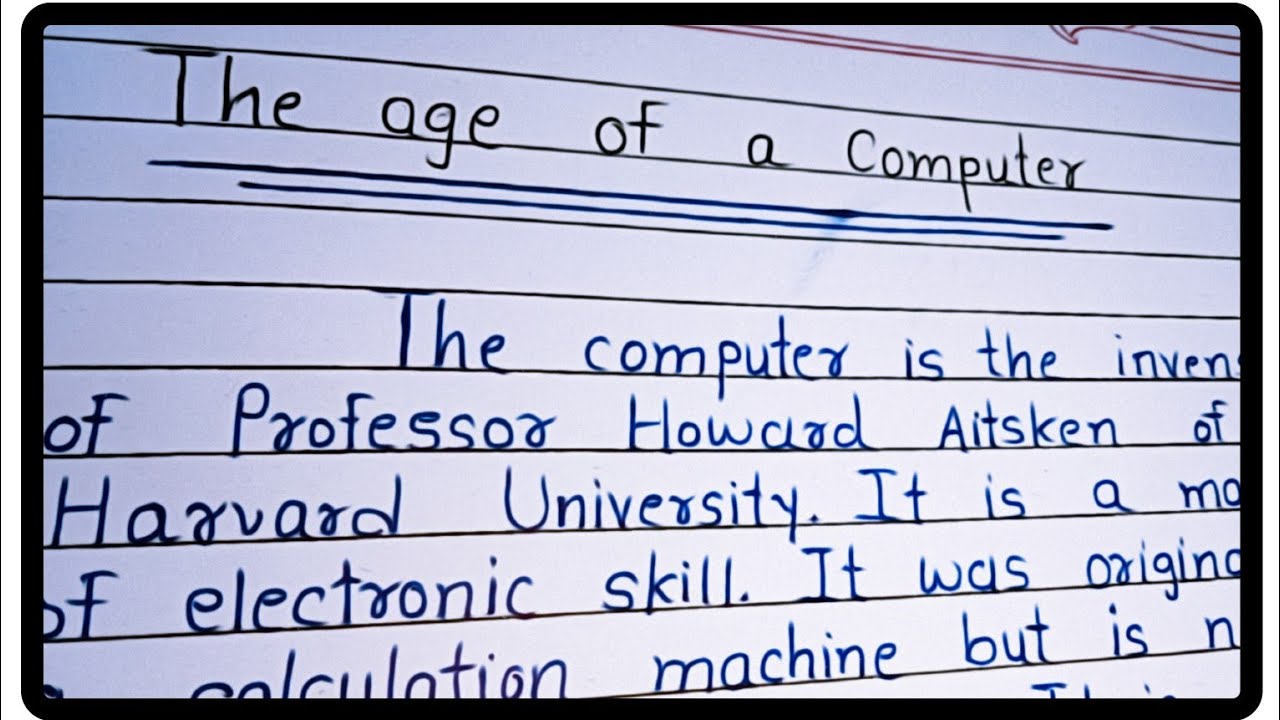 The age of a Computer
The computer is the inven
of Professor Howard Aitsken of
Harvard University. It is a
of electronic skill. It was
calculation machine but is